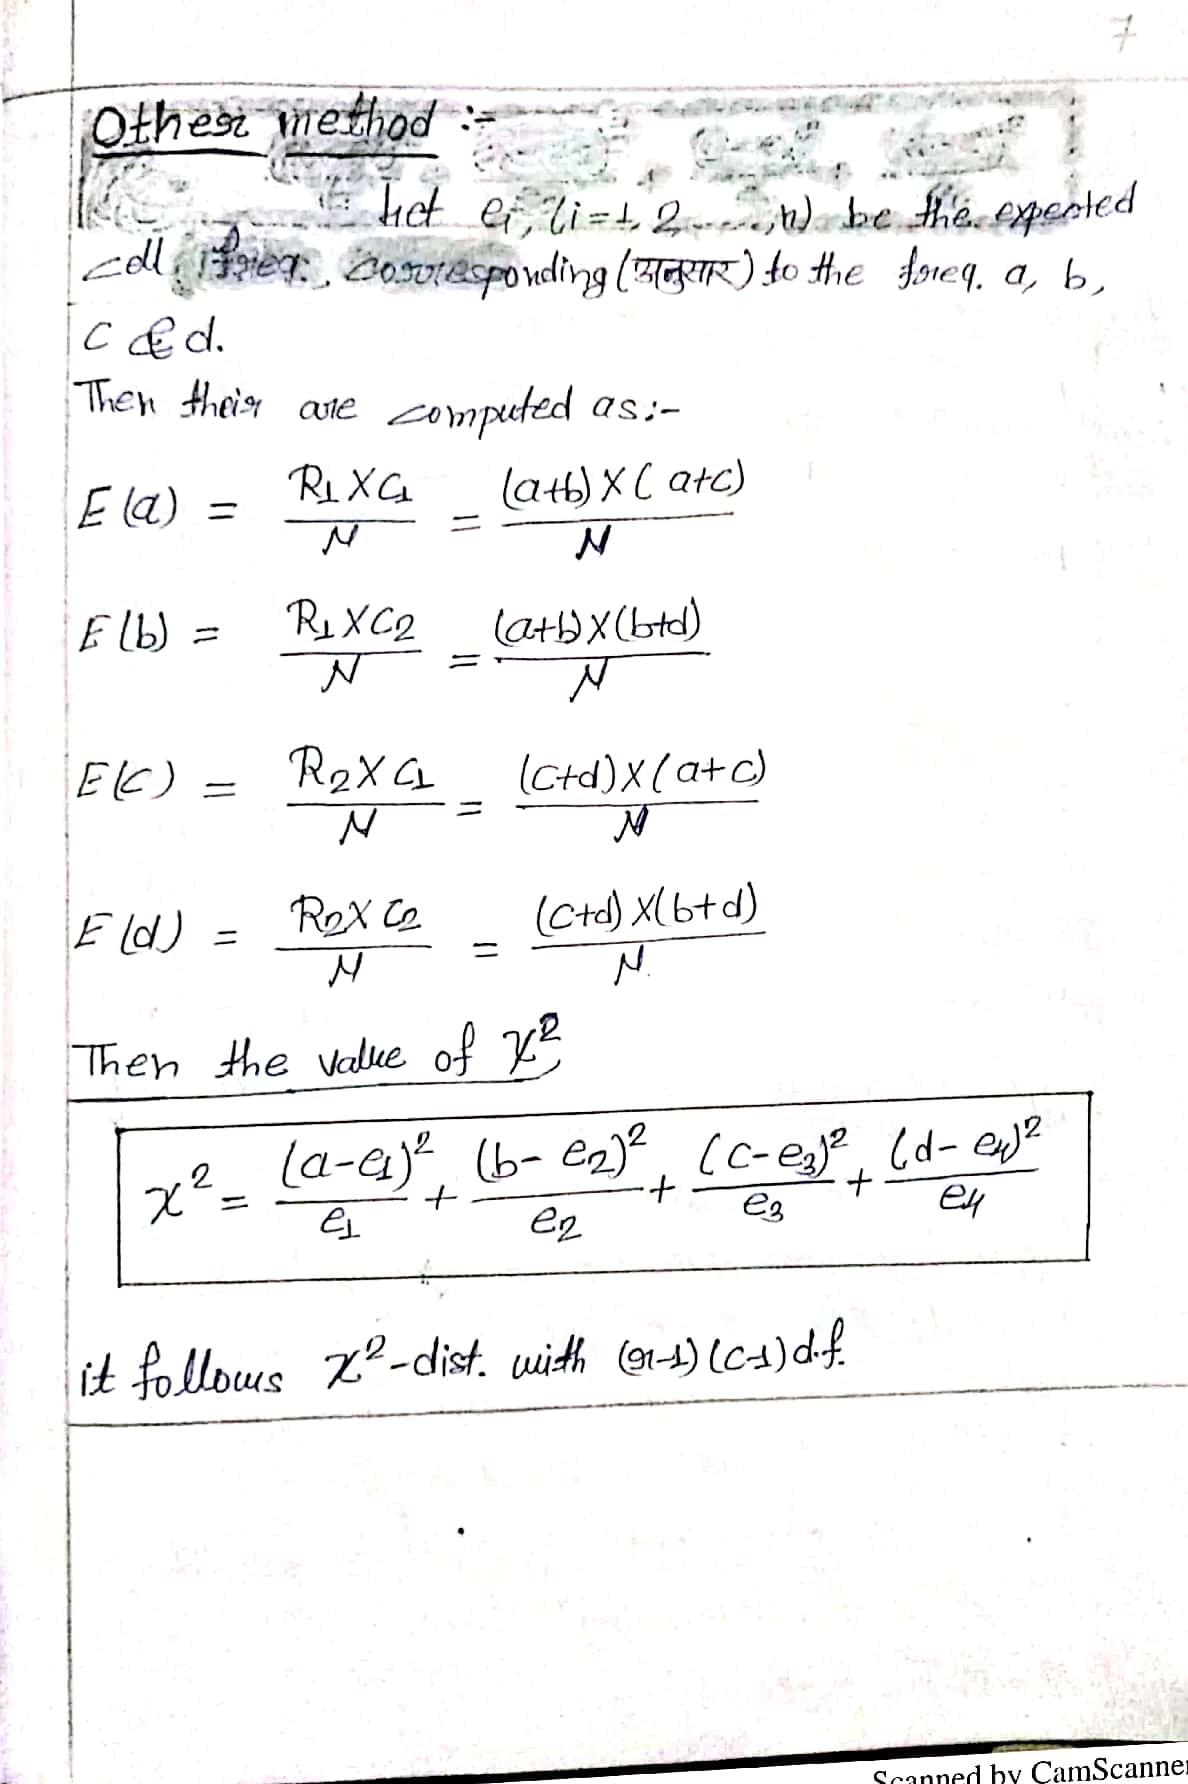 7
Other method :-
Let ei, (i=1, 2, ......, n) be the expected
cell freq. corresponding (अनुसार) to the freq. a, b,
c & d.
Then their are computed as:-
E(a) = R1 X C1 / N = (a+b) X (a+c) / N
E(b) = R1 X C2 / N = (a+b) X (b+d) / N
E(c) = R2 X C1 / N = (c+d) X (a+c) / N
E(d) = R2 X C2 / N = (c+d) X (b+d) / N
Then the value of χ²
χ² = (a-e1)² / e1 + (b-e2)² / e2 + (c-e3)² / e3 + (d-e4)² / e4
it follows χ²-dist. with (r-1) (c-1) d.f.
Scanned by CamScanner